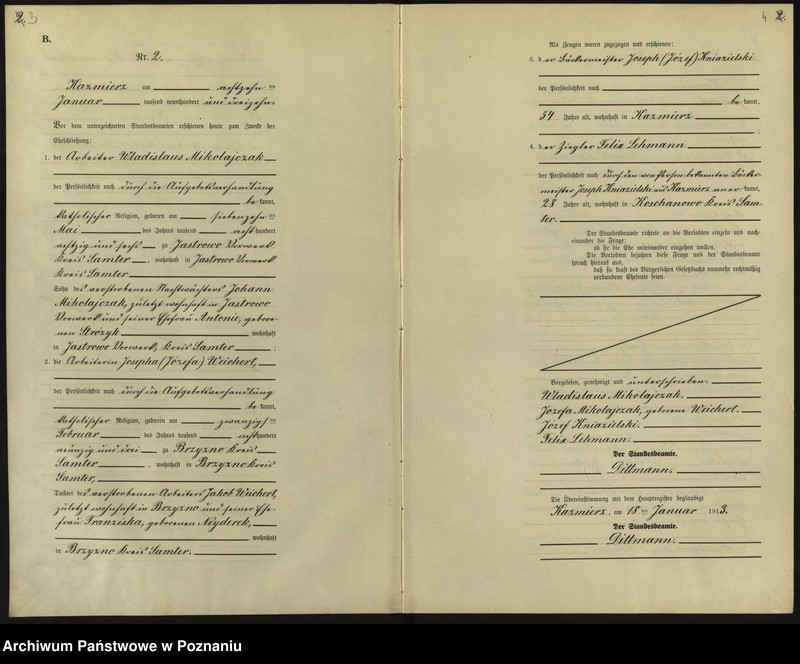 2. 3
B.
Nr. 2.
Kazmierz am achtzehnten
Januar tausend neunhundert und dreizehn.
Vor dem unterzeichneten Standesbeamten erschienen heute zum Zwecke der
Eheschließung:
1. der Arbeiter Wladislaus Mikolajczak
der Persönlichkeit nach durch die Aufgebotsverhandlung
be kannt,
katholischer Religion, geboren am siebenzehnten
Mai des Jahres tausend acht hundert
achtzig und sechs zu Jastrowo Vorwerk
Kreis Samter, wohnhaft in Jastrowo Vorwerk
Kreis Samter
Sohn des verstorbenen Nachtwächters Johann
Mikolajczak, zuletzt wohnhaft in Jastrowo
Vorwerk und seiner Ehefrau Antonie, gebore-
nen Strózyk wohnhaft
in Jastrowo Vorwerk, Kreis Samter ;
2. die Arbeiterin Josepha (Józefa) Weichert,
der Persönlichkeit nach durch die Aufgebotsverhandlung
be kannt,
katholischer Religion, geboren am zwanzigsten
Februar des Jahres tausend acht hundert
neunzig und drei zu Brzyzno Kreis
Samter, wohnhaft in Brzyzno Kreis
Samter,
Tochter des verstorbenen Arbeiters Jakob Weichert,
zuletzt wohnhaft in Brzyzno und seiner Ehe-
frau Franziska, geborenen Neyderek,
wohnhaft
in Brzyzno Kreis Samter.
4 2.
Als Zeugen waren zugezogen und erschienen:
3. der Bäckermeister Joseph (Józef) Kniazielski
der Persönlichkeit nach
be kannt,
54 Jahre alt, wohnhaft in Kazmierz
;
4. der Ziegler Felix Lehmann
der Persönlichkeit nach durch den von Person bekannten Bäcker-
meister Joseph Kniazielski aus Kazmierz anerkannt,
28 Jahre alt, wohnhaft in Koschanowo Kreis Sam-
ter.
Der Standesbeamte richtete an die Verlobten einzeln und nach-
einander die Frage:
ob sie die Ehe miteinander eingehen wollen.
Die Verlobten bejahten diese Frage und der Standesbeamte
sprach hierauf aus,
daß sie kraft des Bürgerlichen Gesetzbuchs nunmehr rechtmäßig
verbundene Eheleute seien.
Vorgelesen, genehmigt und unterschrieben.
Wladislaus Mikolajczak.
Józefa Mikolajczak, geborene Weichert.
Józef Kniazielski.
Felix Lehmann.
Der Standesbeamte.
Dittmann.
Die Übereinstimmung mit dem Hauptregister beglaubigt
Kazmierz, am 18ten Januar 1913.
Der Standesbeamte.
Dittmann.
Archiwum Państwowe w Poznaniu